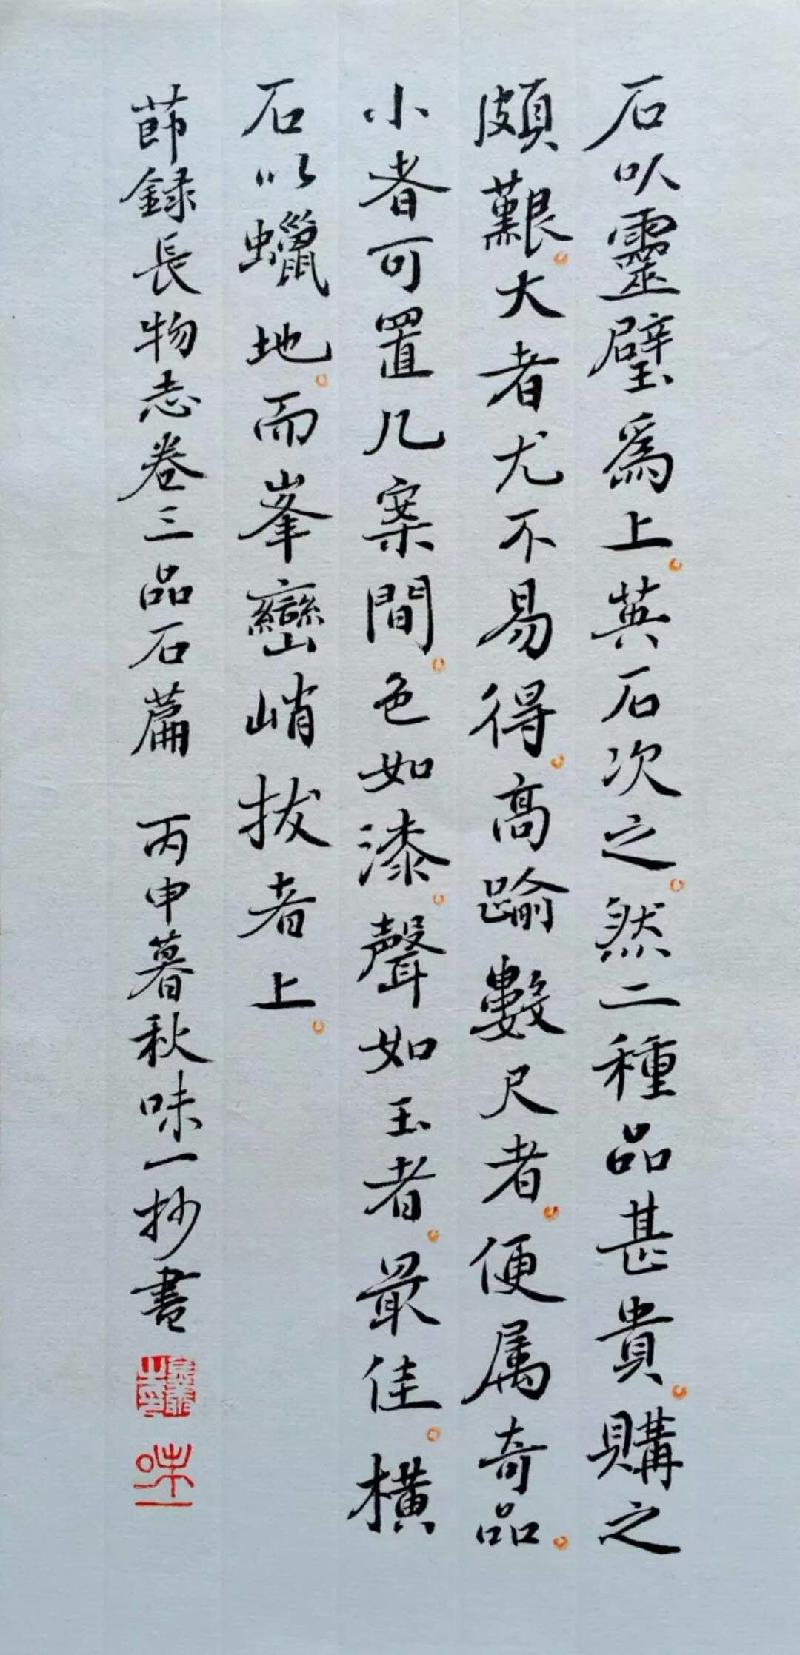 石以靈璧為上。英石次之。然二種品甚貴。購之
頗艱。大者尤不易得。高踰數尺者。便属奇品。
小者可置几案間。色如漆。聲如玉者。最佳。橫
石以蠟地。而峯巒峭拔者上。
節錄長物志卷三品石篇 丙申暮秋味一抄書
味一